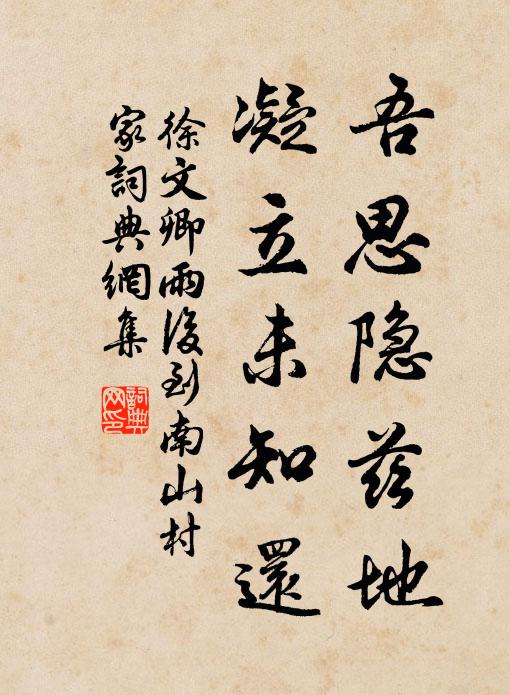 吾思隐兹地
凝立未知還
徐文卿雨後到南山村
家詞典網集
詞典
网印